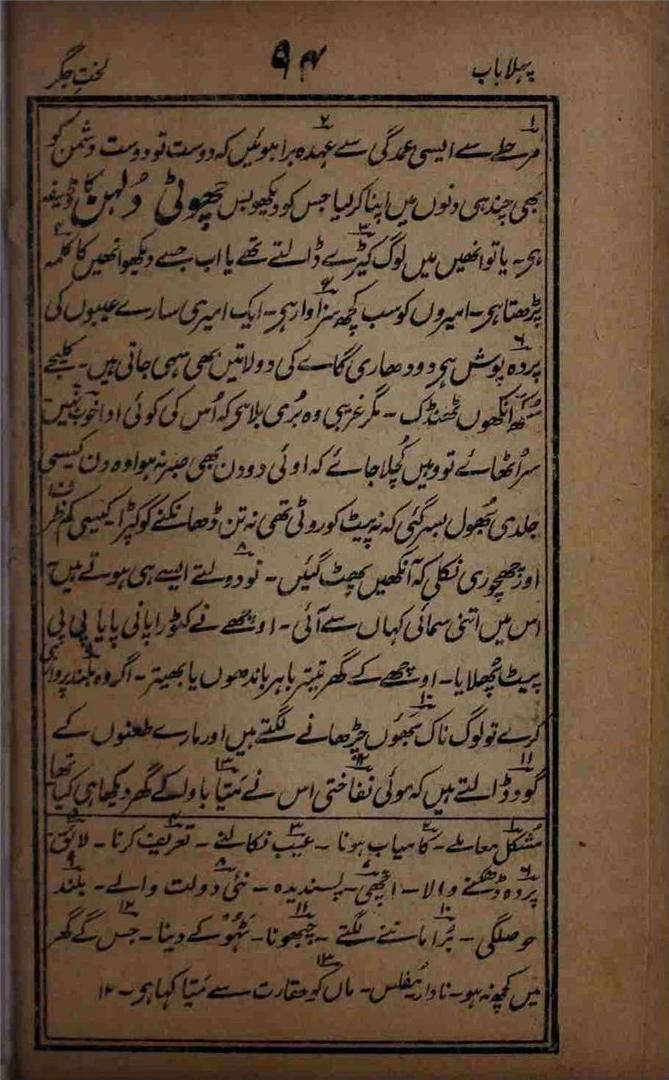 پہلا باب
۹۴
لختِ جگر
مرحلے سے ایسی عمدگی سے عہدہ برا ہوئیں کہ دوست تو دوست دشمن کو
بھی چند ہی دنوں میں اپنا کر لیا جس کو دیکھو بس چھوٹی دُلہن کا وظیفہ
ہی۔ یا تو انھیں میں لوگ کیڑے ڈالتے تھے یا اب جسے دیکھو انھیں کا کلمہ
پڑھتا ہی۔ امیروں کو سب کچھ سزاوار ہی۔ ایک امیری سارے عیبوں کی
پردہ پوش ہی دودھاری گاے کی دو لاتیں بھی سہی جاتی ہیں۔ کلیجے
سکھ آنکھوں ٹھنڈک۔ مگر غریبی وہ بُری بلا ہی کہ اُس کی کوئی ادا خوب نہیں
سر اُٹھائے تو وہیں کُچلا جائے کہ اوئی دو دن بھی صبر نہ ہوا وہ دن کیسی
جلدی بھُول بسر گئی کہ نہ پیٹ کو روٹی تھی نہ تن ڈھانکنے کو کپڑا کیسی کم ظرف
اور چھچوری نکلی کہ آنکھیں پھٹ گئیں۔ نو دولتے ایسے ہی ہوتے ہیں
اس میں اتنی سمائی کہاں سے آئی۔ اوچھے نے کٹورا پانی پایا پی پی
پیٹ پُھلایا۔ اوچھے کے گھر تیتر باہر باندھوں یا بھیتر۔ اگر وہ بلند پروازی
کرے تو لوگ ناک بَھوں چڑھانے لگتے ہیں اور مارے طعنوں کے
گود ڈالتے ہیں کہ موئی نفاختی اس نے مَیّا باوا کے گھر دیکھا ہی کیا تھا
مُشکل معاملے۔ کامیاب ہونا۔ عیب نکالنے۔ تعریف کرنا۔ لائق
پردہ ڈھکنے والا۔ اچھی۔ پسندیدہ۔ نئی دولت والے۔ بلند
حوصلگی۔ بُرا ماننے لگتے۔ چبھونا۔ ٹہوکے دینا۔ جس کے گھر
میں کچھ نہ ہو۔ نادار مُفلس۔ ماں کو حقارت سے مَیّا کہا ہی۔ ۱۲